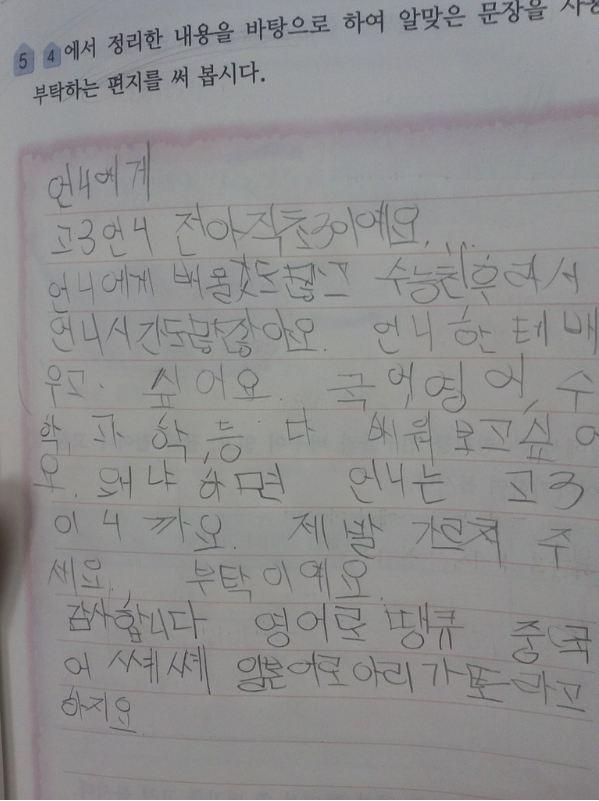 5 4에서 정리한 내용을 바탕으로 하여 알맞은 문장을
부탁하는 편지를 써 봅시다.
언니에게
고3언니 전아직초3이예요.
언니에게 배울것도많고 수능친후라서
언니시간도많잖아요. 언니한테배
우고 싶어요. 국어,영어, 수
학, 과학,등 다 배워보고싶어
요. 왜냐하면 언니는 고3
이니까요. 제발 가르쳐 주
세요. 부탁이예요.
감사합니다 영어로 땡큐 중국
어 쎼쎼 일본어로아리가또라고
하지요